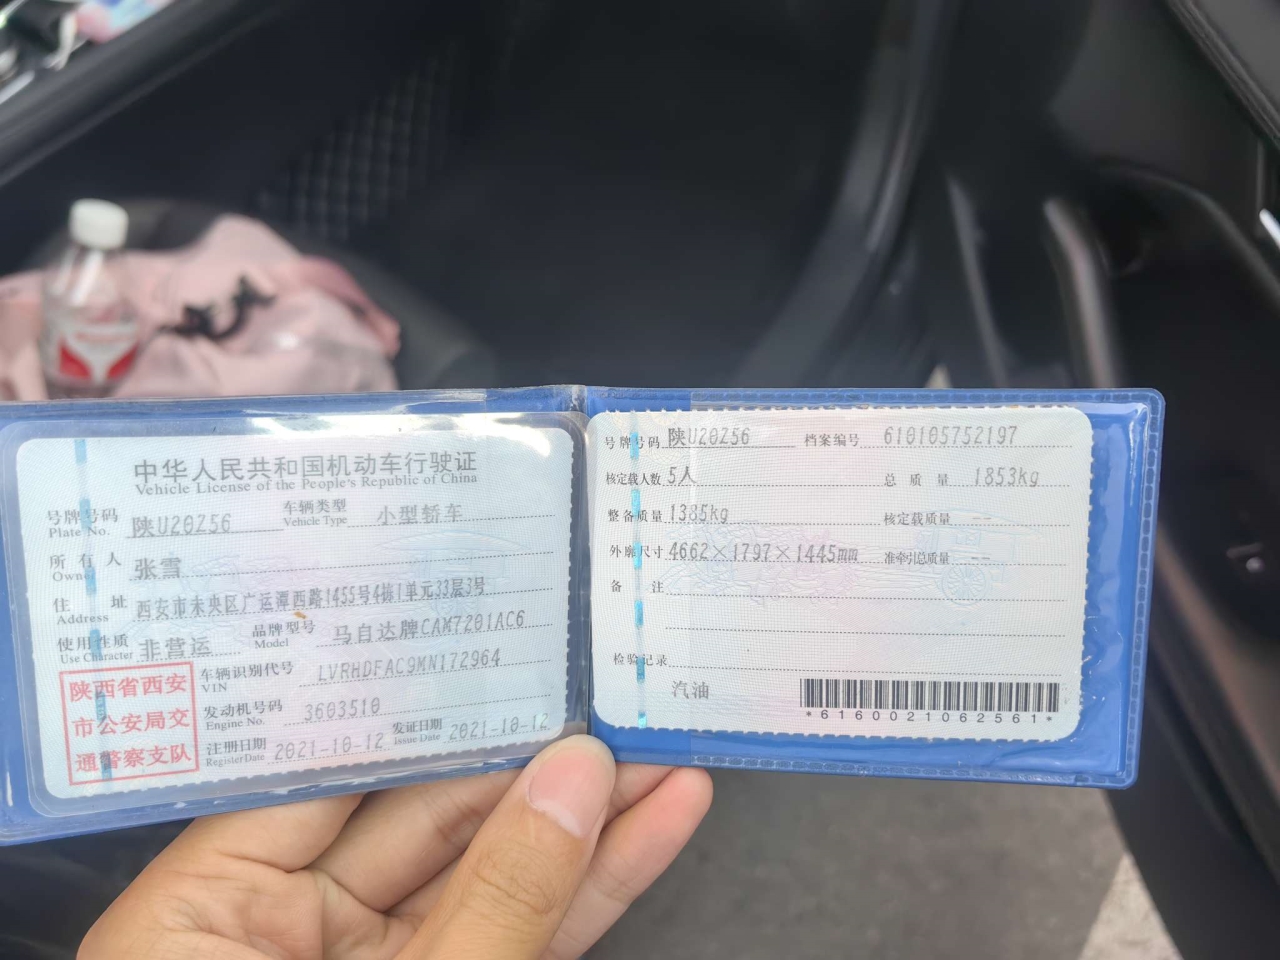 中华人民共和国机动车行驶证
Vehicle License of the People's Republic of China
号牌号码 陕U20Z56 车辆类型 小型轿车
Plate No. Vehicle Type
所有人 张雪
Owner
住址 西安市未央区广运潭西路1455号4栋1单元33层3号
Address
使用性质 非营运 品牌型号 马自达牌CAM7201AC6
Use Character Model
陕西省西安
市公安局交
通警察支队
车辆识别代号 LVRHDFAC9MN172964
VIN
发动机号码 3603510
Engine No.
注册日期 2021-10-12 发证日期 2021-10-12
Register Date Issue Date
号牌号码 陕U20Z56 档案编号 610105752197
核定载人数 5人 总质量 1853kg
整备质量 1385kg 核定载质量 --
外廓尺寸 4662×1797×1445mm 准牵引总质量 --
备注
检验记录
汽油
*6160021062561*